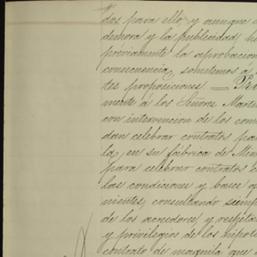 dos para ello y aunque
demora y la publicidad
previamente la aprobacion
consecuencia, sometemos á
tes proposiciones — Pri
mente á los Señores Mart
con intervencion de los com
dan celebrar contratos pa
la, en su fábrica de
para celebrar contratos
las condiciones y bases q
mientes, consultando siemp
de los acreedores, y
y privilegios de los hipote
contrato de maquila que